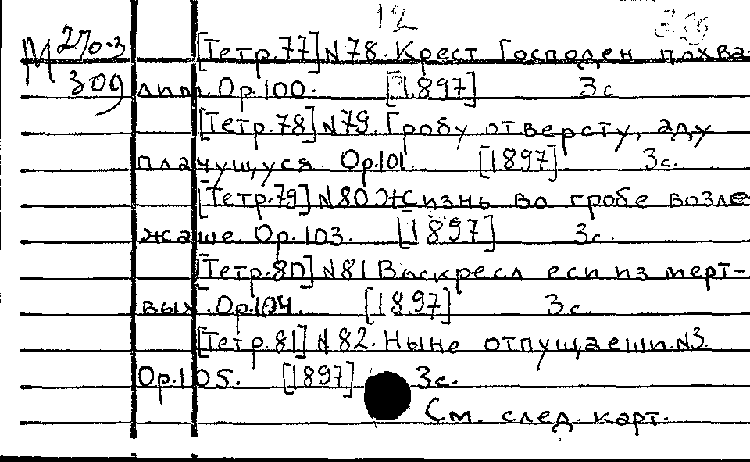 12
М 270-3 [Тетр.77] N78. Крест Господен похва-
309 лит. Ор.100. [1897] 3с
[Тетр.78] N79. Гробу отверсту, аду
плачущуся Ор.101. [1897] 3с.
[Тетр.79] N80 Жизнь во гробе возле-
жаше. Ор.103. [1897] 3с.
[Тетр.80] N81 Воскресл еси из мерт-
вых. Ор.104. [1897] 3с
[Тетр.81] N82. Ныне отпущаеши. N3.
Ор.105. [1897] 3с.
См. след. карт.